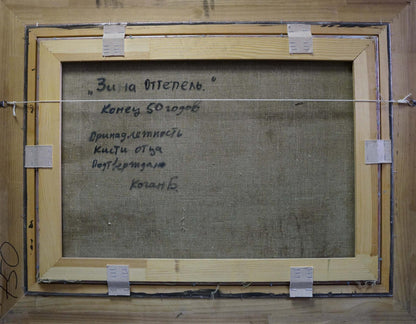 „Зима Оттепель."
Конец 50 годов
Принадлежность
Кисти отца
Подтверждаю
Коган Б.